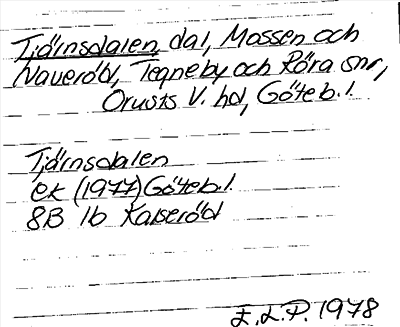 Tjärnsdalen, dal, Mossen och
Naveröd, Tegneby och Röra snr,
Orusts V. hd, Göteb. l.
Tjärnsdalen
ek (1977) Göteb. l.
8B 1b Kaseröd
E.L.P. 1978